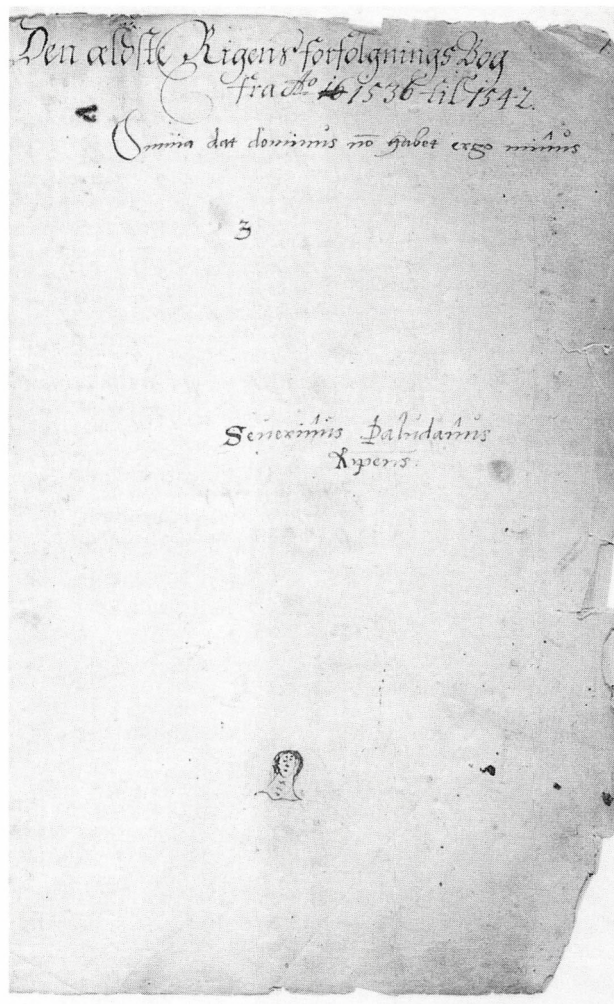 Den ældste Rigens forfølgnings Bog
fra Aº 1536 til 1542.
A
Omnia dat dominus nō habet ergo minus
3
Seuerinus Paludanus
Ripens.